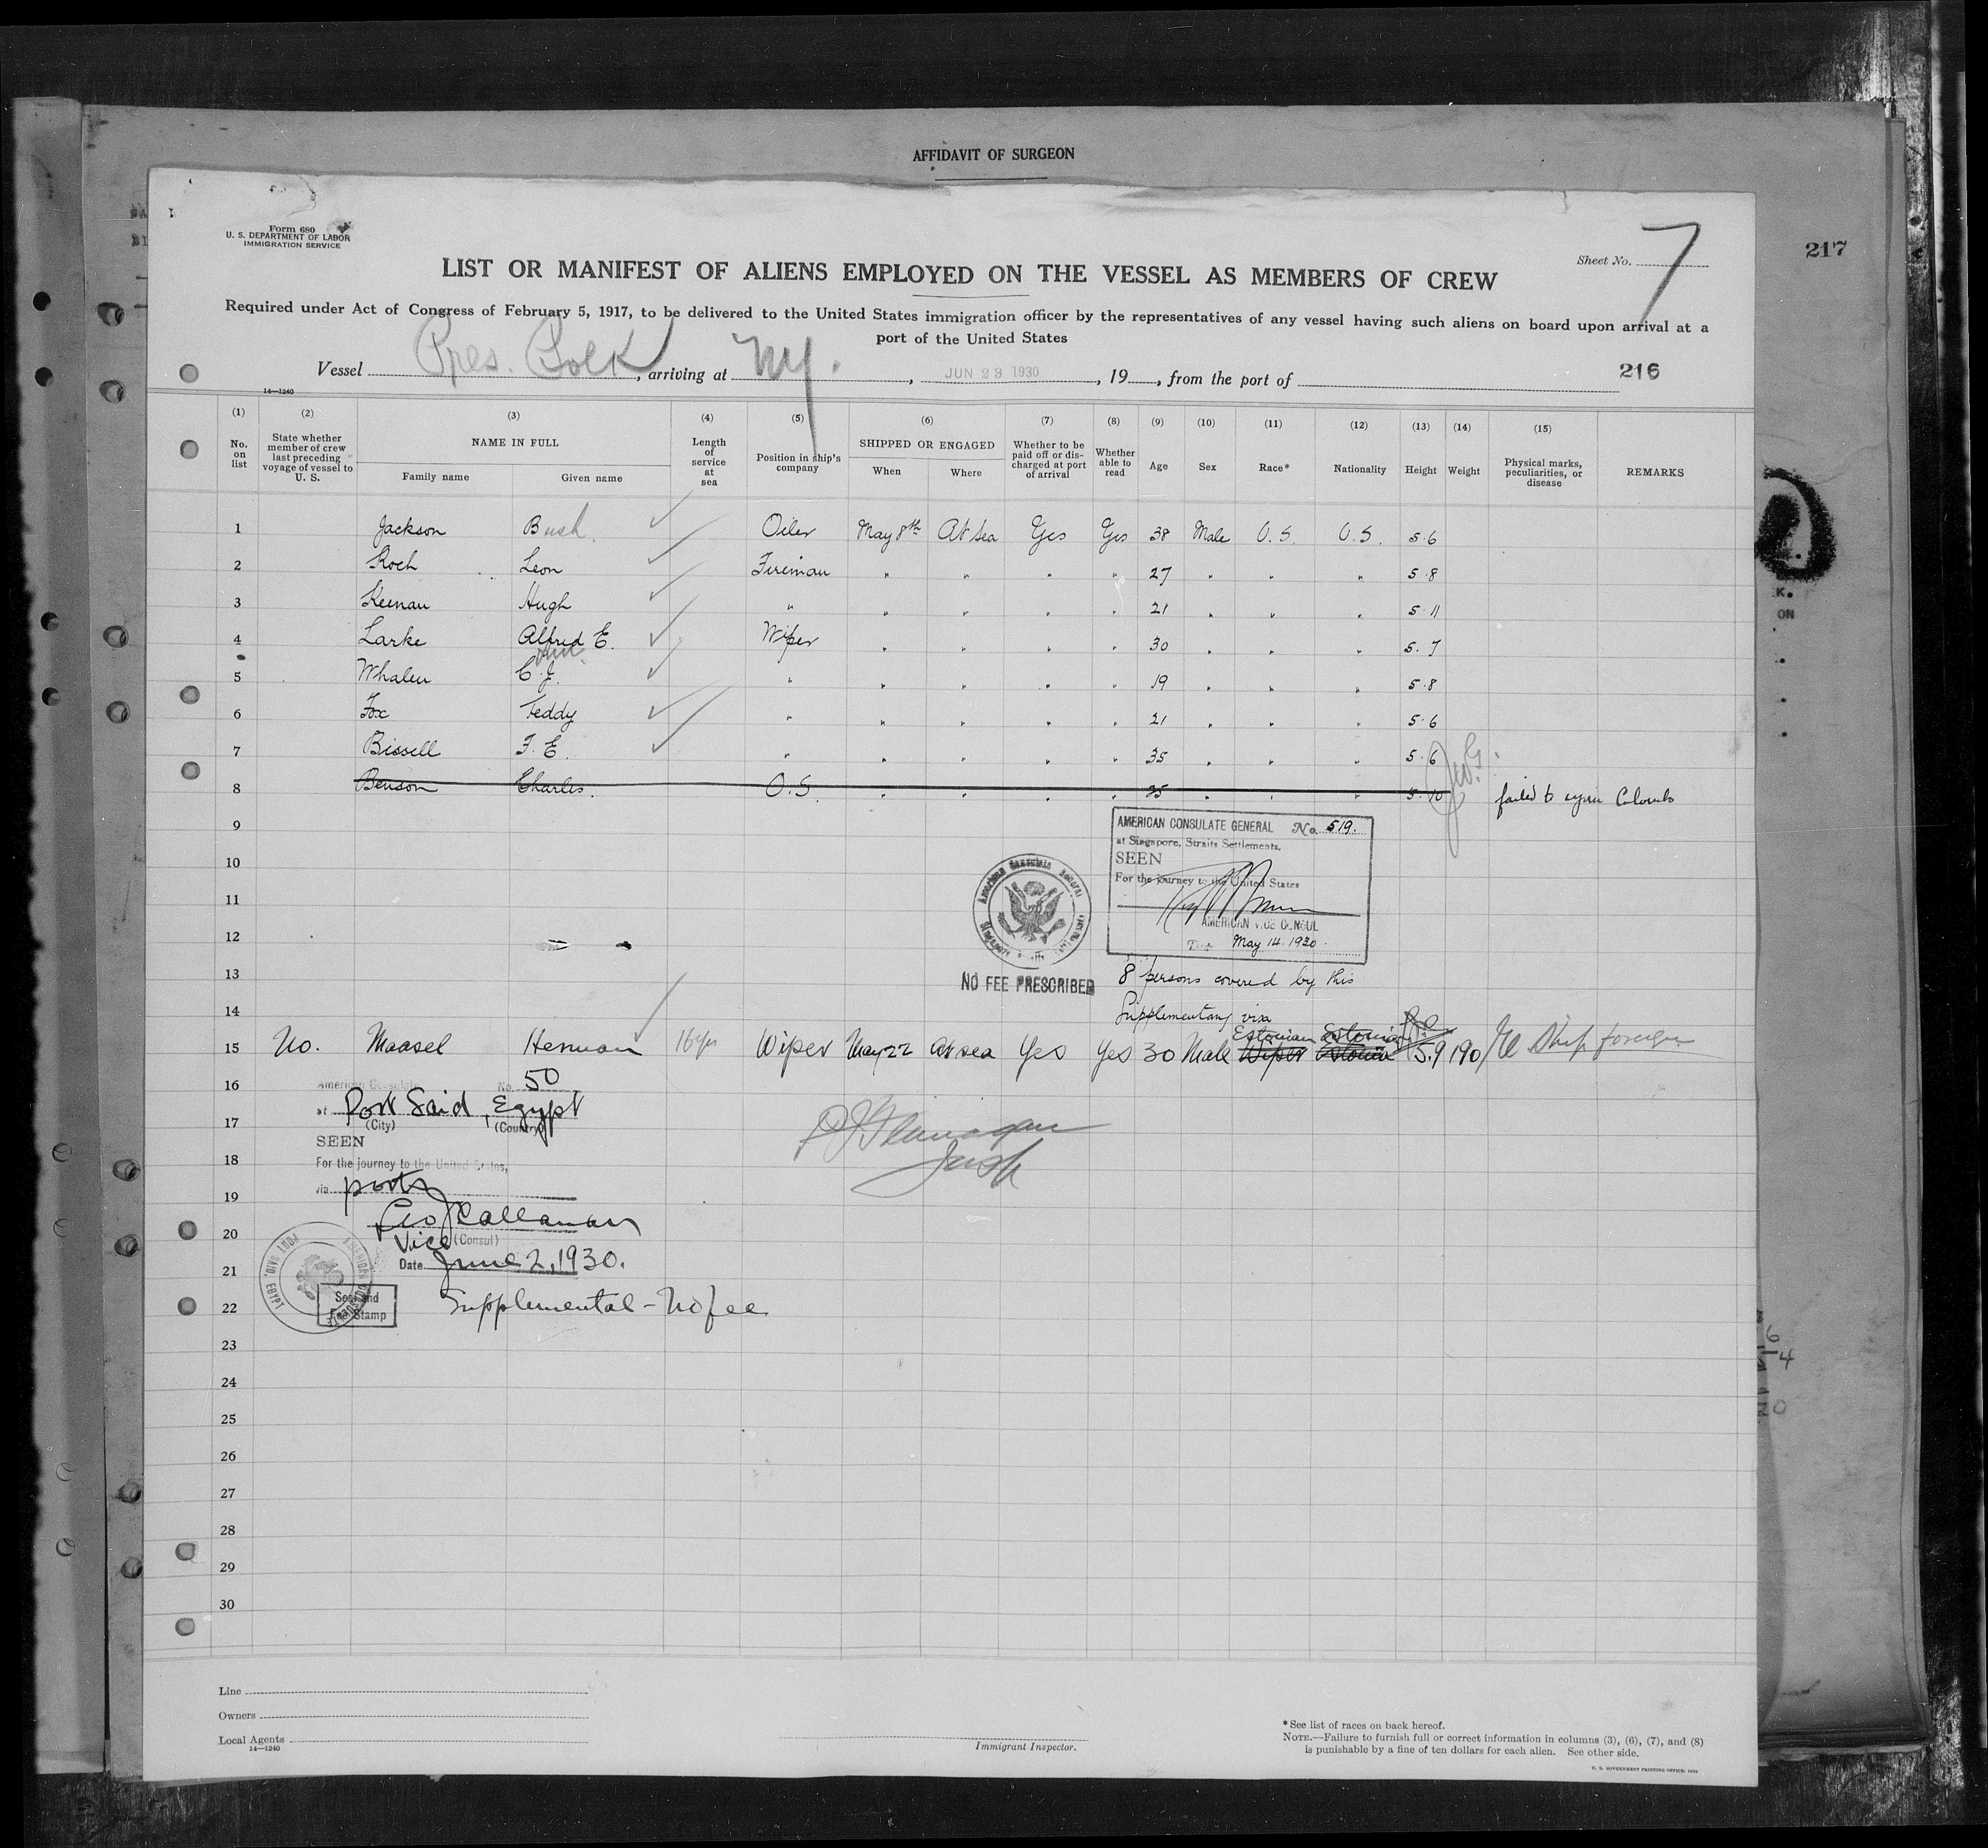 AFFIDAVIT OF SURGEON
217
Form 680
U. S. DEPARTMENT OF LABOR
IMMIGRATION SERVICE
Sheet No. 7
LIST OR MANIFEST OF ALIENS EMPLOYED ON THE VESSEL AS MEMBERS OF CREW
Required under Act of Congress of February 5, 1917, to be delivered to the United States immigration officer by the representatives of any vessel having such aliens on board upon arrival at a
port of the United States
Vessel Pres. Polk, arriving at NY., JUN 23 1930, 19, from the port of
216
14—1240
(1) (2) (3) (4) (5) (6) (7) (8) (9) (10) (11) (12) (13) (14) (15)
No. on list
State whether member of crew last preceding voyage of vessel to U. S.
NAME IN FULL
Family name Given name
Length of service at sea
Position in ship's company
SHIPPED OR ENGAGED
When Where
Whether to be paid off or discharged at port of arrival
Whether able to read
Age
Sex
Race*
Nationality
Height
Weight
Physical marks, peculiarities, or disease
REMARKS
1 Jackson Bush. Oiler May 8th At Sea Yes Yes 38 Male U.S. U.S. 5.6
2 Roch Leon Fireman " " " " 27 " " " 5.8
3 Keenan Hugh " " " " " 21 " " " 5.11
4 Larke Alfred E. Wiper " " " " 30 " " " 5.7
5 Whalen C. J. " " " " " 19 " " " 5.8
6 Fox Teddy " " " " " 21 " " " 5.6
7 Bissell F. E. " " " " " 35 " " " 5.6
8 Benson Charles. O.S. " " " " 25 " " " 5.10 failed to Colombo
9
AMERICAN CONSULATE GENERAL No. 519.
at Singapore, Straits Settlements.
SEEN
For the journey to the United States
AMERICAN VICE CONSUL
May 14. 1930.
10
11
12
13
NO FEE PRESCRIBED
8 persons covered by this
Supplementary visa
14
Estonian Estonian
15 No. Maasel Herman 16 yrs Wiper May 22 At sea Yes Yes 30 Male Wiper Estonia 5.9 190
16
American Consulate No. 50
at Port Said, Egypt
(City) (Country)
17
SEEN
18
For the journey to the United States,
via ports
19
Geo J Callanan
20
Vice (Consul)
Date June 2, 1930.
21
PORT SAID, EGYPT
Seal and
Fee Stamp
22 Supplemental - No fee
23
24
25
26
27
28
29
30
Line
Owners
Local Agents
14—1240
Immigrant Inspector.
*See list of races on back hereof.
NOTE.—Failure to furnish full or correct information in columns (3), (6), (7), and (8)
is punishable by a fine of ten dollars for each alien. See other side.